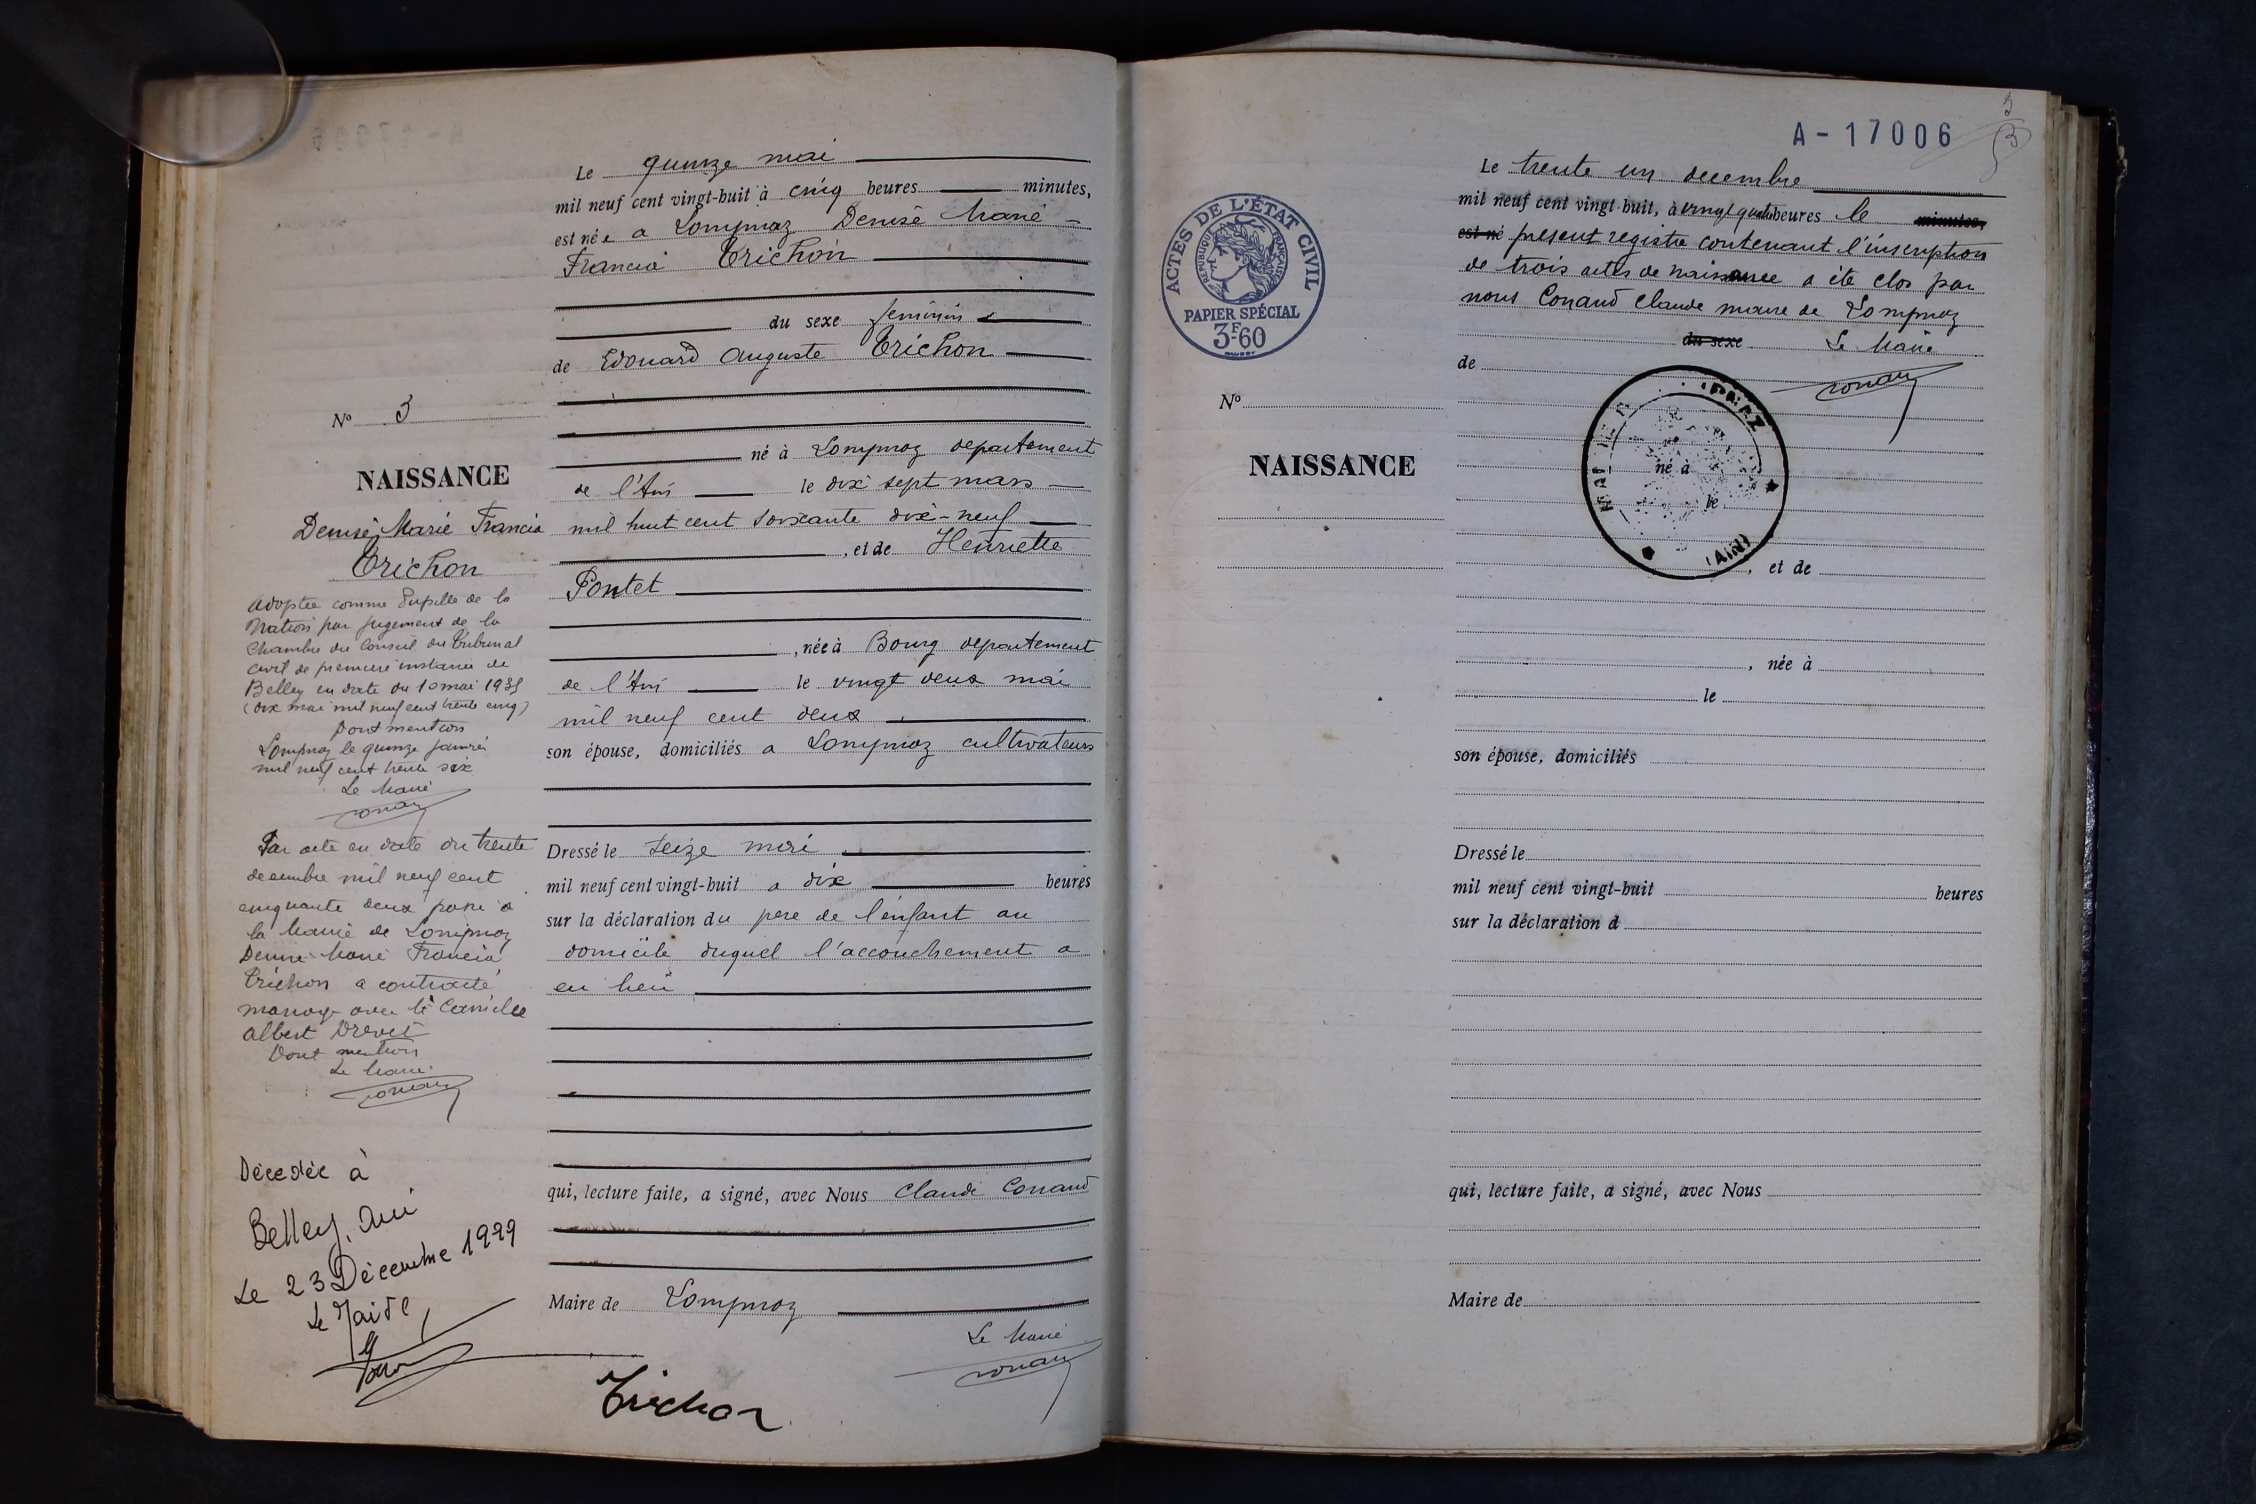 Le quinze mai
mil neuf cent vingt-huit à cinq heures minutes,
est née a Lompnaz Denise Marie
Francia Trichon
du sexe féminin
de Edouard Auguste Trichon
né à Lompnaz departement
de l'Ain le dix sept mars
mil huit cent soixante dix-neuf
, et de Henriette
Pontet
, née à Bourg departement
de l'Ain le vingt deux mai
mil neuf cent deux
son épouse, domiciliés a Lompnaz cultivateurs
Dressé le seize mai
mil neuf cent vingt-huit a dix heures
sur la déclaration du pere de l'enfant au
domicile duquel l'accouchement a
eu lieu
qui, lecture faite, a signé, avec Nous Claude Conand
Maire de Lompnaz
Le Maire
Conand
Trichon
No 3
NAISSANCE
Denise Marie Francia
Trichon
Adoptée comme Pupille de la
Nation par jugement de la
Chambre du Conseil du Tribunal
civil de premiere instance de
Belley en date du 10 mai 1935
(dix mai mil neuf cent trente cinq)
Dont mention
Lompnaz le quinze janvier
mil neuf cent trente six
Le Maire
Conand
Par acte en date du trente
decembre mil neuf cent
cinquante deux passé a
la Mairie de Lompnaz
Denise Marie Francia
Trichon a contracté
mariage avec Camille
Albert Drevet
Dont mention
Le Maire
Conand
Décédée à
Belley, Ain
Le 23 Décembre 1999
Le Maire
A-17006
3
3
ACTES DE L'ÉTAT CIVIL
RÉPUBLIQUE FRANÇAISE
PAPIER SPÉCIAL
3F.60
No
NAISSANCE
Le trente un decembre
mil neuf cent vingt-huit, à vingt quatre heures le minutes,
est né present registre contenant l'inscription
de trois actes de naissance a été clos par
nous Conand Claude maire de Lompnaz
du sexe Le Maire
de
Conand
MAIRIE D PNAZ
(AIN)
né à
le
, et de
, née à
le
son épouse, domiciliés
Dressé le
mil neuf cent vingt-huit heures
sur la déclaration d
qui, lecture faite, a signé, avec Nous
Maire de